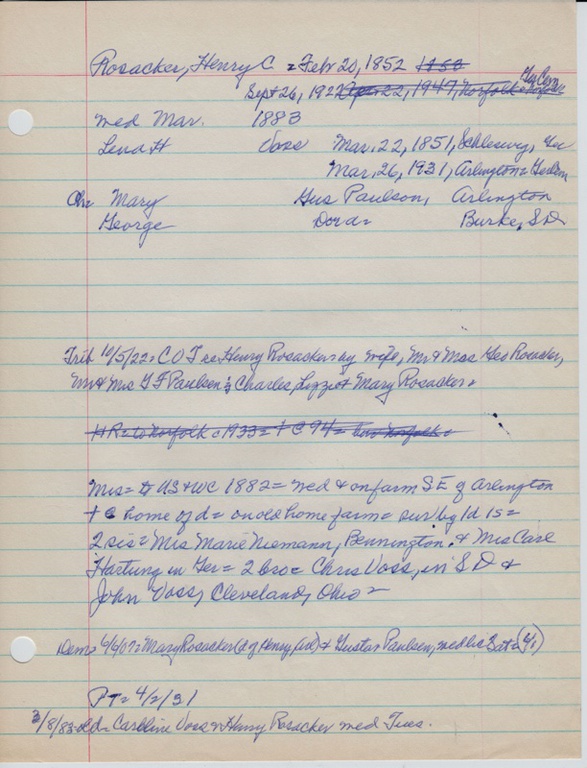 Rosacker, Henry C. = Feb 20, 1852 1858
Ger Cem
Sept 26, 1922 22, 1947, Norfolk = Norfolk
wed Mar. 1883
Lena H Voss Mar. 22, 1851, Schleswig, Ger
Mar. 26, 1931, Arlington = GerCem
Ch = Mary Gus Paulson, Arlington
George Dora = Burke, S D
Trib 10/5/22 = C O T re Henry Rosacker by wife, Mr & Mrs Geo Rosacker,
Mr & Mrs G F Paulsen & Charles, Mary Rosacker =
H R = to Norfolk c 1933 = + @ 94 = Norfolk =
Mrs = to US & WC 1882 = wed & on farm SE of Arlington
+ @ home of d = on old home farm = sur by 1d 1s =
2 sis = Mrs Marie Niemann, Bennington, & Mrs Carl
Hartung in Ger = 2 bro = Chris Voss, in S D &
John Voss, Cleveland, Ohio =
Dem = 6/6/07 = Mary Rosacker (d of Henry, Arl) & Gustav Paulsen, wed lic Sat =
PT = 4/2/31
3/8/83 = old = Caroline Voss & Henry Rosacker wed Tues.